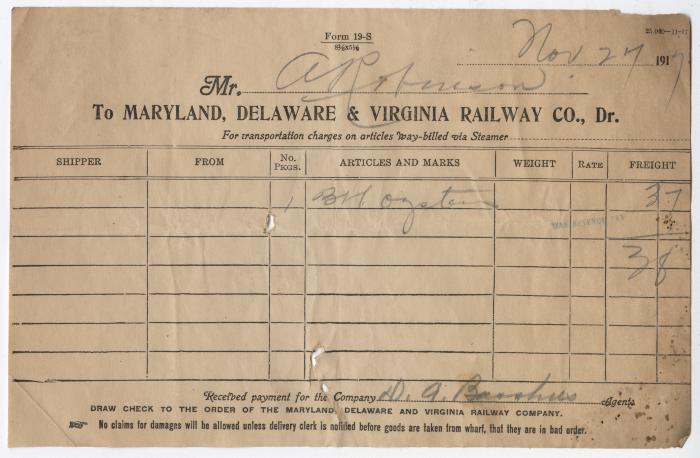 Form 19-S
8½x5½
25,000—11-17
Nov. 27 1917
Mr. A Robinson
To MARYLAND, DELAWARE & VIRGINIA RAILWAY CO., Dr.
For transportation charges on articles Way-billed via Steamer
SHIPPER FROM No. PKGS. ARTICLES AND MARKS WEIGHT RATE FREIGHT
1 Bbl oysters 37
WAR REVENUE TAX
38
Received payment for the Company D. A. Agent
DRAW CHECK TO THE ORDER OF THE MARYLAND, DELAWARE AND VIRGINIA RAILWAY COMPANY.
No claims for damages will be allowed unless delivery clerk is notified before goods are taken from wharf, that they are in bad order.